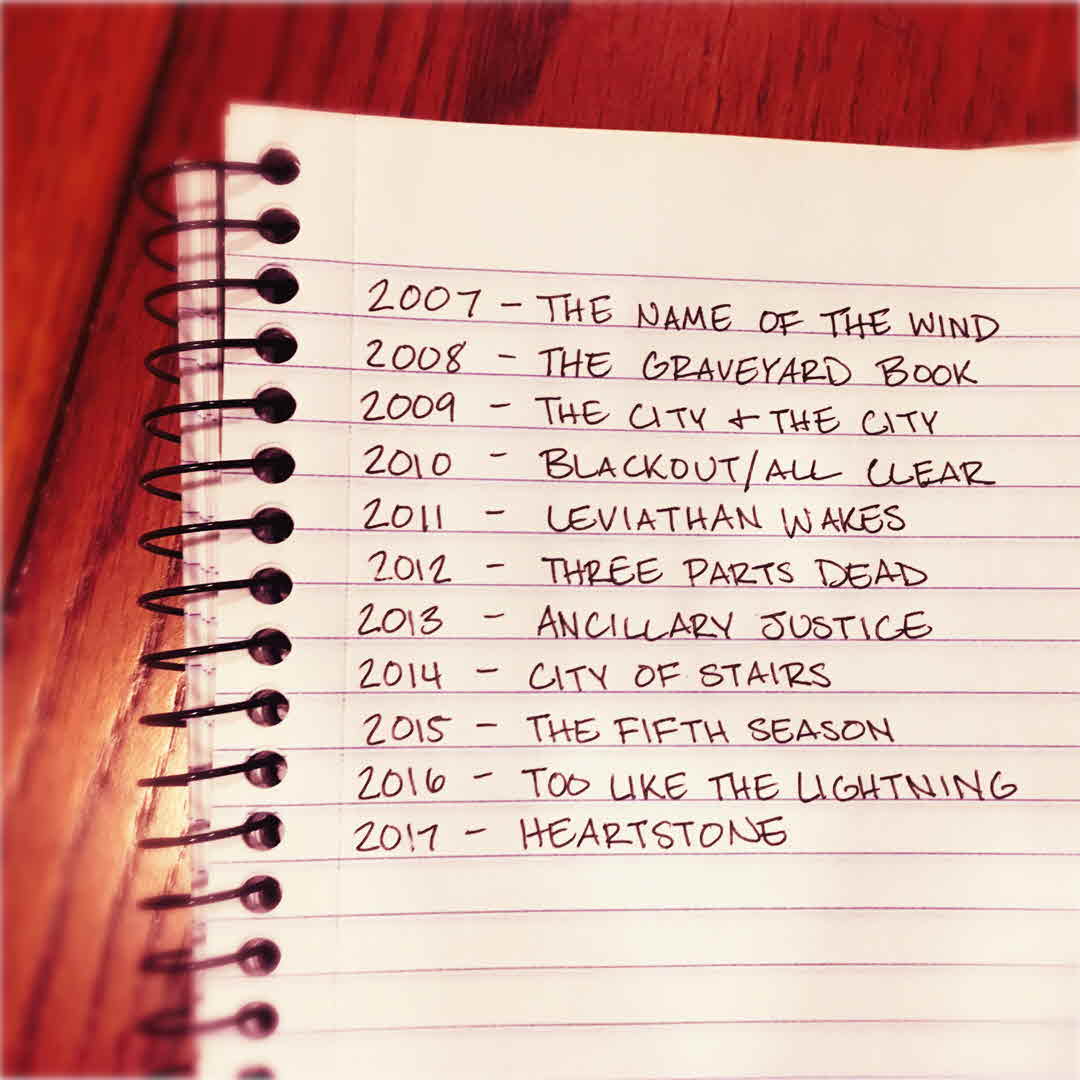 2007 - THE NAME OF THE WIND
2008 - THE GRAVEYARD BOOK
2009 - THE CITY + THE CITY
2010 - BLACKOUT/ALL CLEAR
2011 - LEVIATHAN WAKES
2012 - THREE PARTS DEAD
2013 - ANCILLARY JUSTICE
2014 - CITY OF STAIRS
2015 - THE FIFTH SEASON
2016 - TOO LIKE THE LIGHTNING
2017 - HEARTSTONE